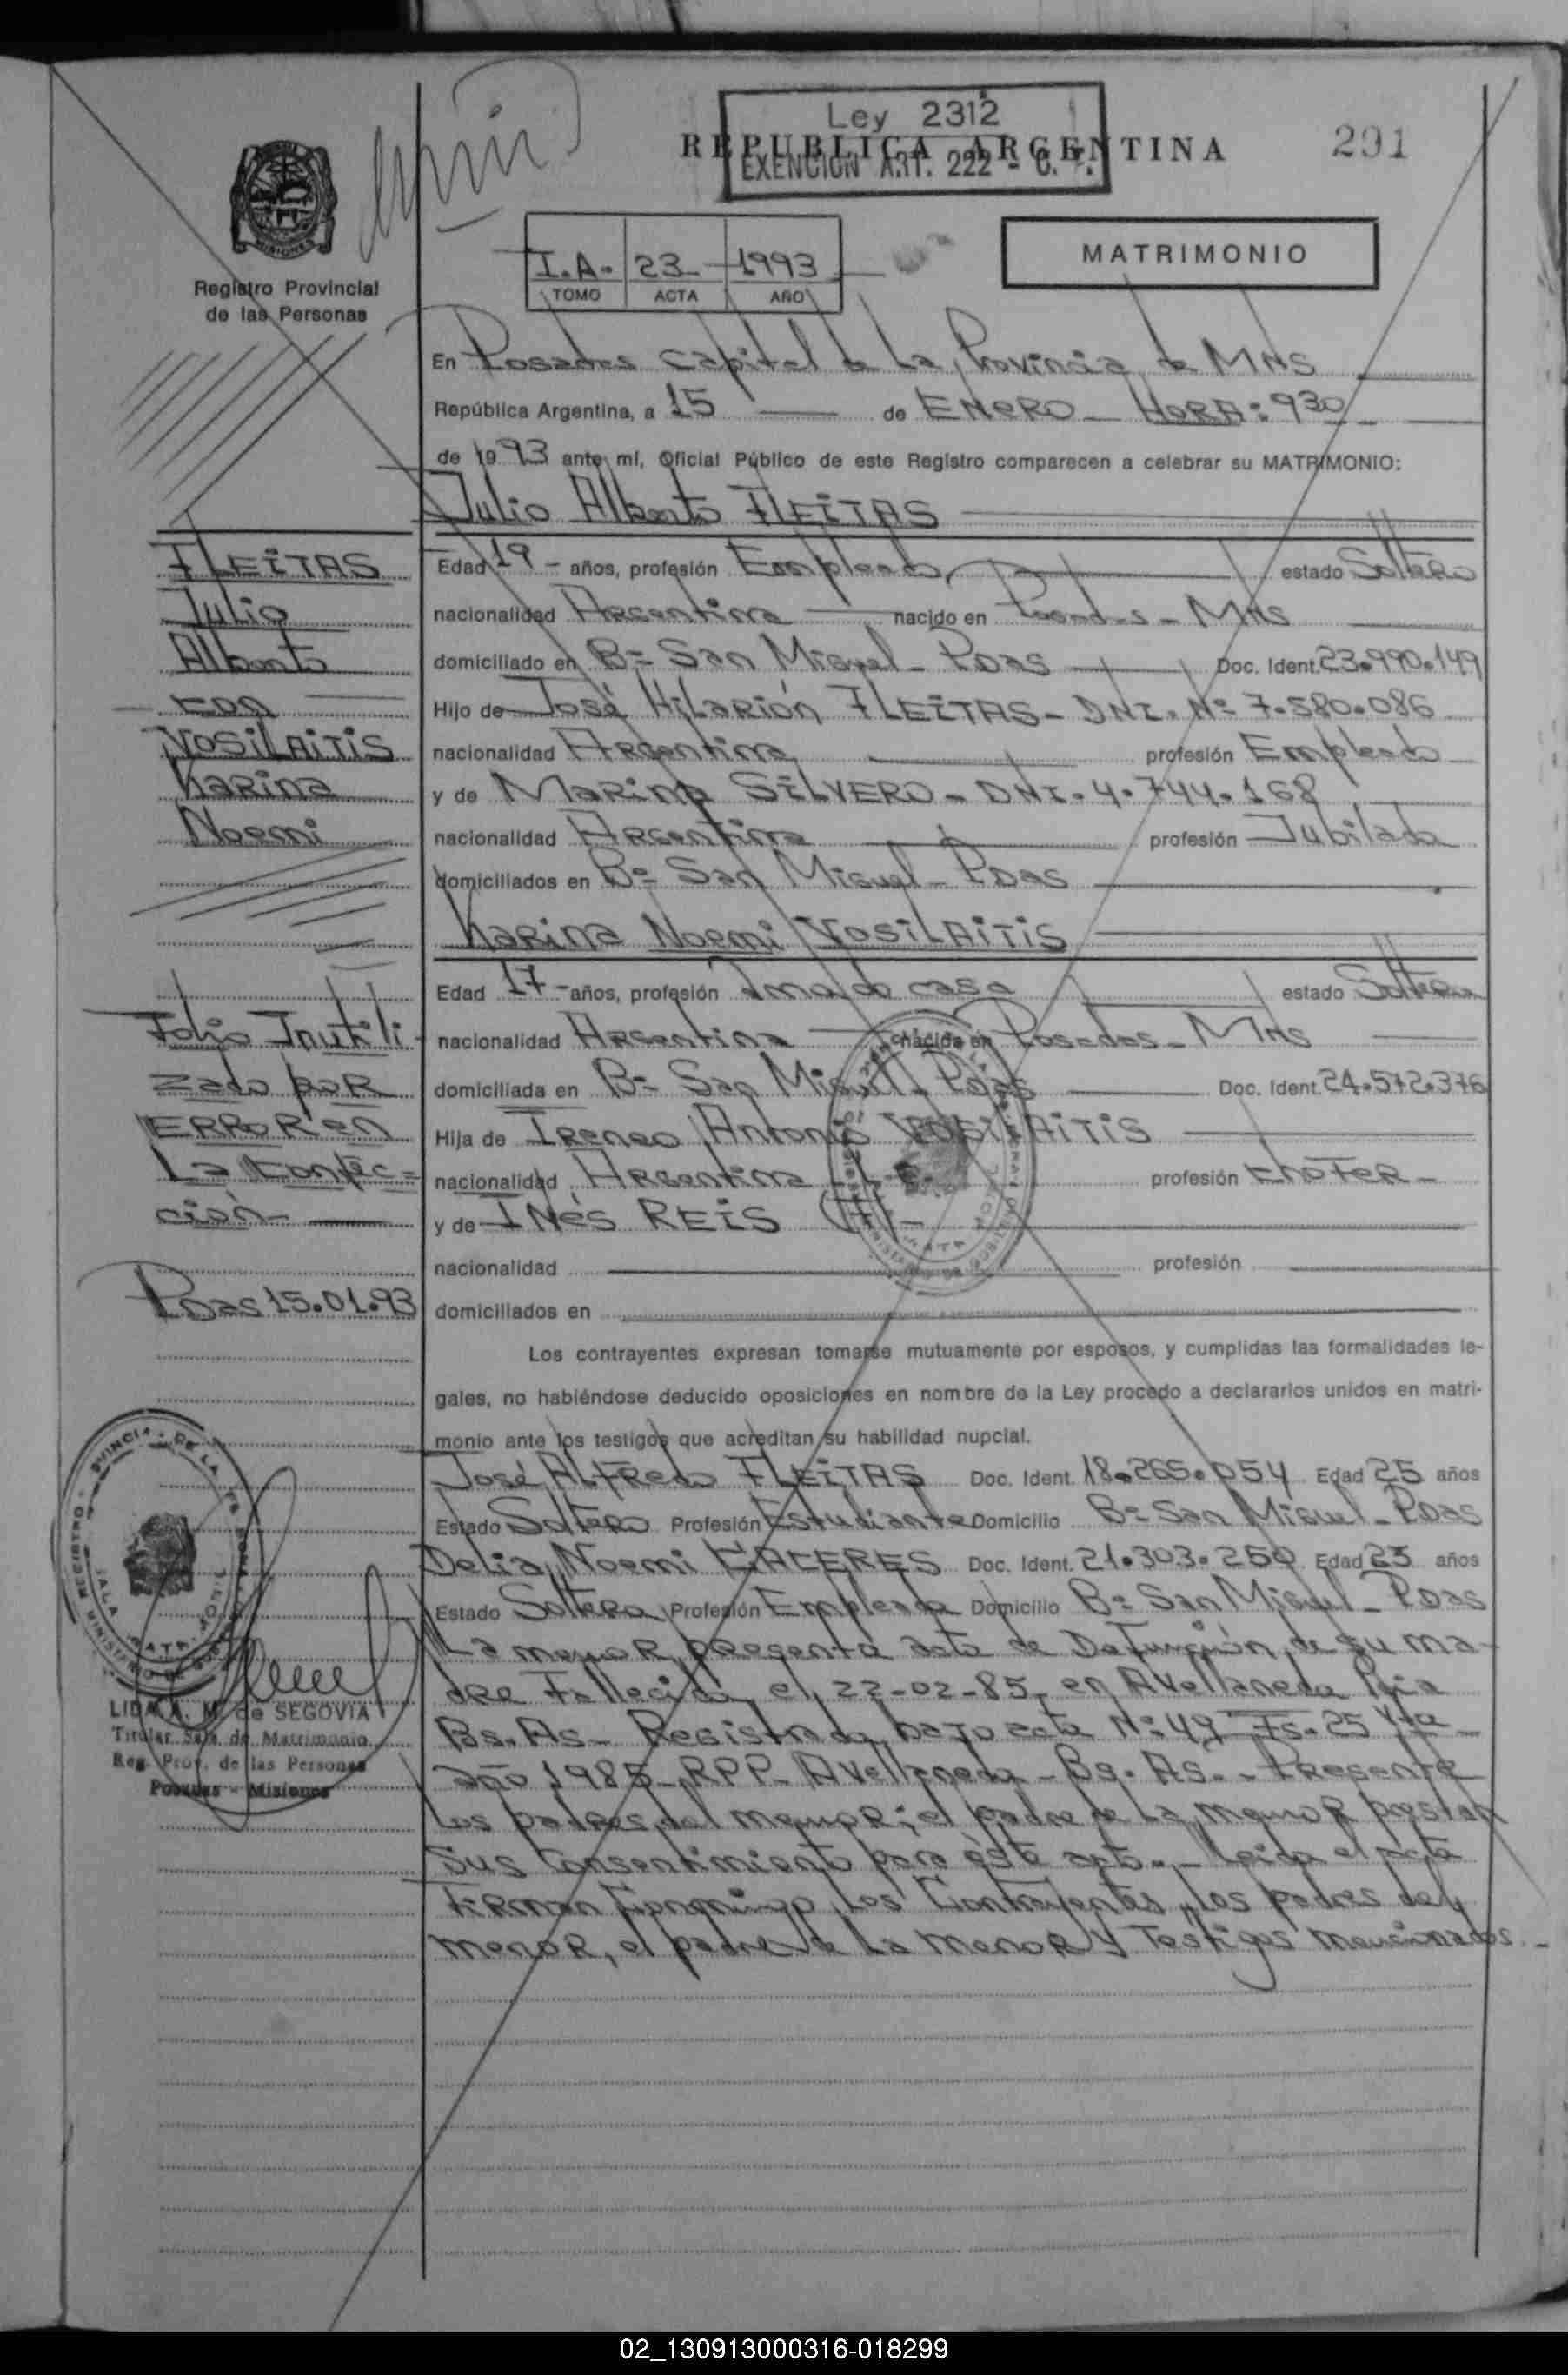 Ley 2312
REPUBLICA ARGENTINA
EXENCION ART. 222 - C.
291
MISIONES
Registro Provincial
de las Personas
I.A. 23 1993
TOMO ACTA AÑO
MATRIMONIO
En Posadas Capital de La Provincia de Mns
República Argentina, a 15 de ENERO HORA: 930
de 1993 ante mí, Oficial Público de este Registro comparecen a celebrar su MATRIMONIO:
Julio Alberto FLEITAS
FLEITAS
Julio
Alberto
con
VOSILAITIS
Karina
Noemi
Edad 19 - años, profesión Empleado estado Soltero
nacionalidad Argentina nacido en Posadas - Mns
domiciliado en Bº San Miguel - Pdas Doc. Ident. 23.990.149
Hijo de José Hilarión FLEITAS - DNI. Nº 7.580.086
nacionalidad Argentina profesión Empleado
y de Marina SILVERO - DNI. 4.744.168
nacionalidad Argentina profesión Jubilada
domiciliados en Bº San Miguel - Pdas
Karina Noemi VOSILAITIS
Edad 17 - años, profesión Ama de casa estado Soltera
nacionalidad Argentina nacida en Posadas - Mns
domiciliada en Bº San Miguel - Pdas Doc. Ident. 24.572.376
Hija de Ireneo Antonio VOSILAITIS
nacionalidad Argentina profesión Chofer
y de Inés REIS (F)
nacionalidad profesión
domiciliados en
Folio Inutili-
zado por
ERROR en
La Confec=
ción
Pdas 15.01.93
Los contrayentes expresan tomarse mutuamente por esposos, y cumplidas las formalidades le-
gales, no habiéndose deducido oposiciones en nombre de la Ley procedo a declararlos unidos en matri-
monio ante los testigos que acreditan su habilidad nupcial.
José Alfredo FLEITAS Doc. Ident. 18.265.054 Edad 25 años
Estado Soltero Profesión Estudiante Domicilio Bº San Miguel - Pdas
Delia Noemi CACERES Doc. Ident. 21.303.250 Edad 23 años
Estado Soltera Profesión Empleada Domicilio Bº San Miguel - Pdas
La menor presenta acta de Defunción de su ma-
dre Fallecida el 22-02-85 en Avellaneda Pcia
Bs. As. Registrada bajo acta Nº 49 Fs. 25 Vta
año 1985 - RPP - Avellaneda - Bs. As. - Presente
los padres del menor; el padre de La menor prestan
Sus Consentimiento para éste acto. - Leída el acta
Firman Conmigo, Los Contrayentes, los padres del
menor, el padre de La menor y Testigos mencionados. -
LIDIA A. M. de SEGOVIA
Titular Sec. de Matrimonio
Reg. Prov. de las Personas
Posadas - Misiones
02_130913000316-018299